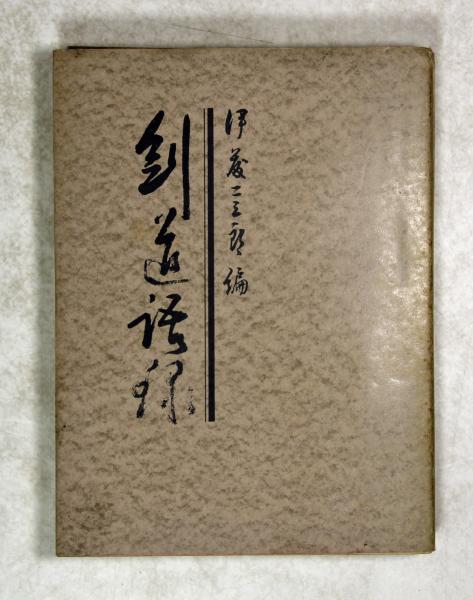 伊藤二三郎編
剣道語録